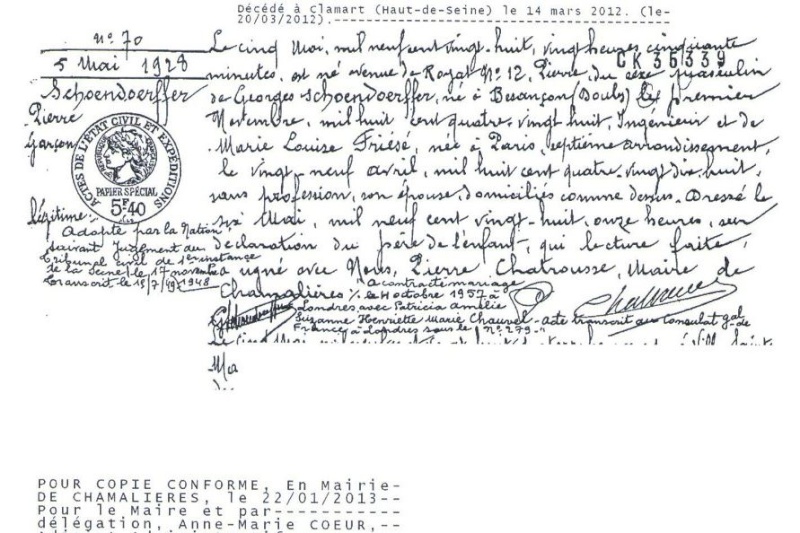 Décédé à Clamart (Haut-de-Seine) le 14 mars 2012. (le-
20/03/2012).-----------------------------------------
n° 70
5 Mai 1928
Schoendoerffer
Pierre
Garçon
ACTES DE L'ÉTAT CIVIL ET EXPÉDITIONS
PAPIER SPÉCIAL
5F40
Légitime
Adopté par la Nation
suivant Jugement du
Tribunal civil de 1ère instance
de la Seine, le 17 novembre
1948
Transcrit le 19/7/49
CK 35339
Le cinq Mai, mil neuf cent vingt-huit, vingt heures cinquante
minutes, est né avenue de Royat N° 12, Pierre, du sexe masculin
de Georges Schoendoerffer, né à Besançon (Doubs) le premier
Novembre, mil huit cent quatre-vingt-huit, Ingénieur et de
Marie Louise Friésé, née à Paris, septième arrondissement,
le vingt-neuf avril, mil huit cent quatre-vingt dix huit,
sans profession, son épouse, domiciliés comme dessus. Dressé le
six Mai, mil neuf cent vingt-huit, onze heures, sur
déclaration du père de l'enfant, qui lecture faite,
a signé avec Nous, Pierre Chatrousse, Maire de
Chamalières ./.
A contracté mariage
le 4 octobre 1957 à
Londres avec Patricia Amélie
Suzanne Henriette Marie Chauvel - acte transcrit au Consulat gal de
France à Londres sous le "N° 279"
Le cinq Mai, mil neuf cent
POUR COPIE CONFORME, En Mairie-
DE CHAMALIERES, le 22/01/2013--
Pour le Maire et par-----------
délégation, Anne-Marie COEUR,--